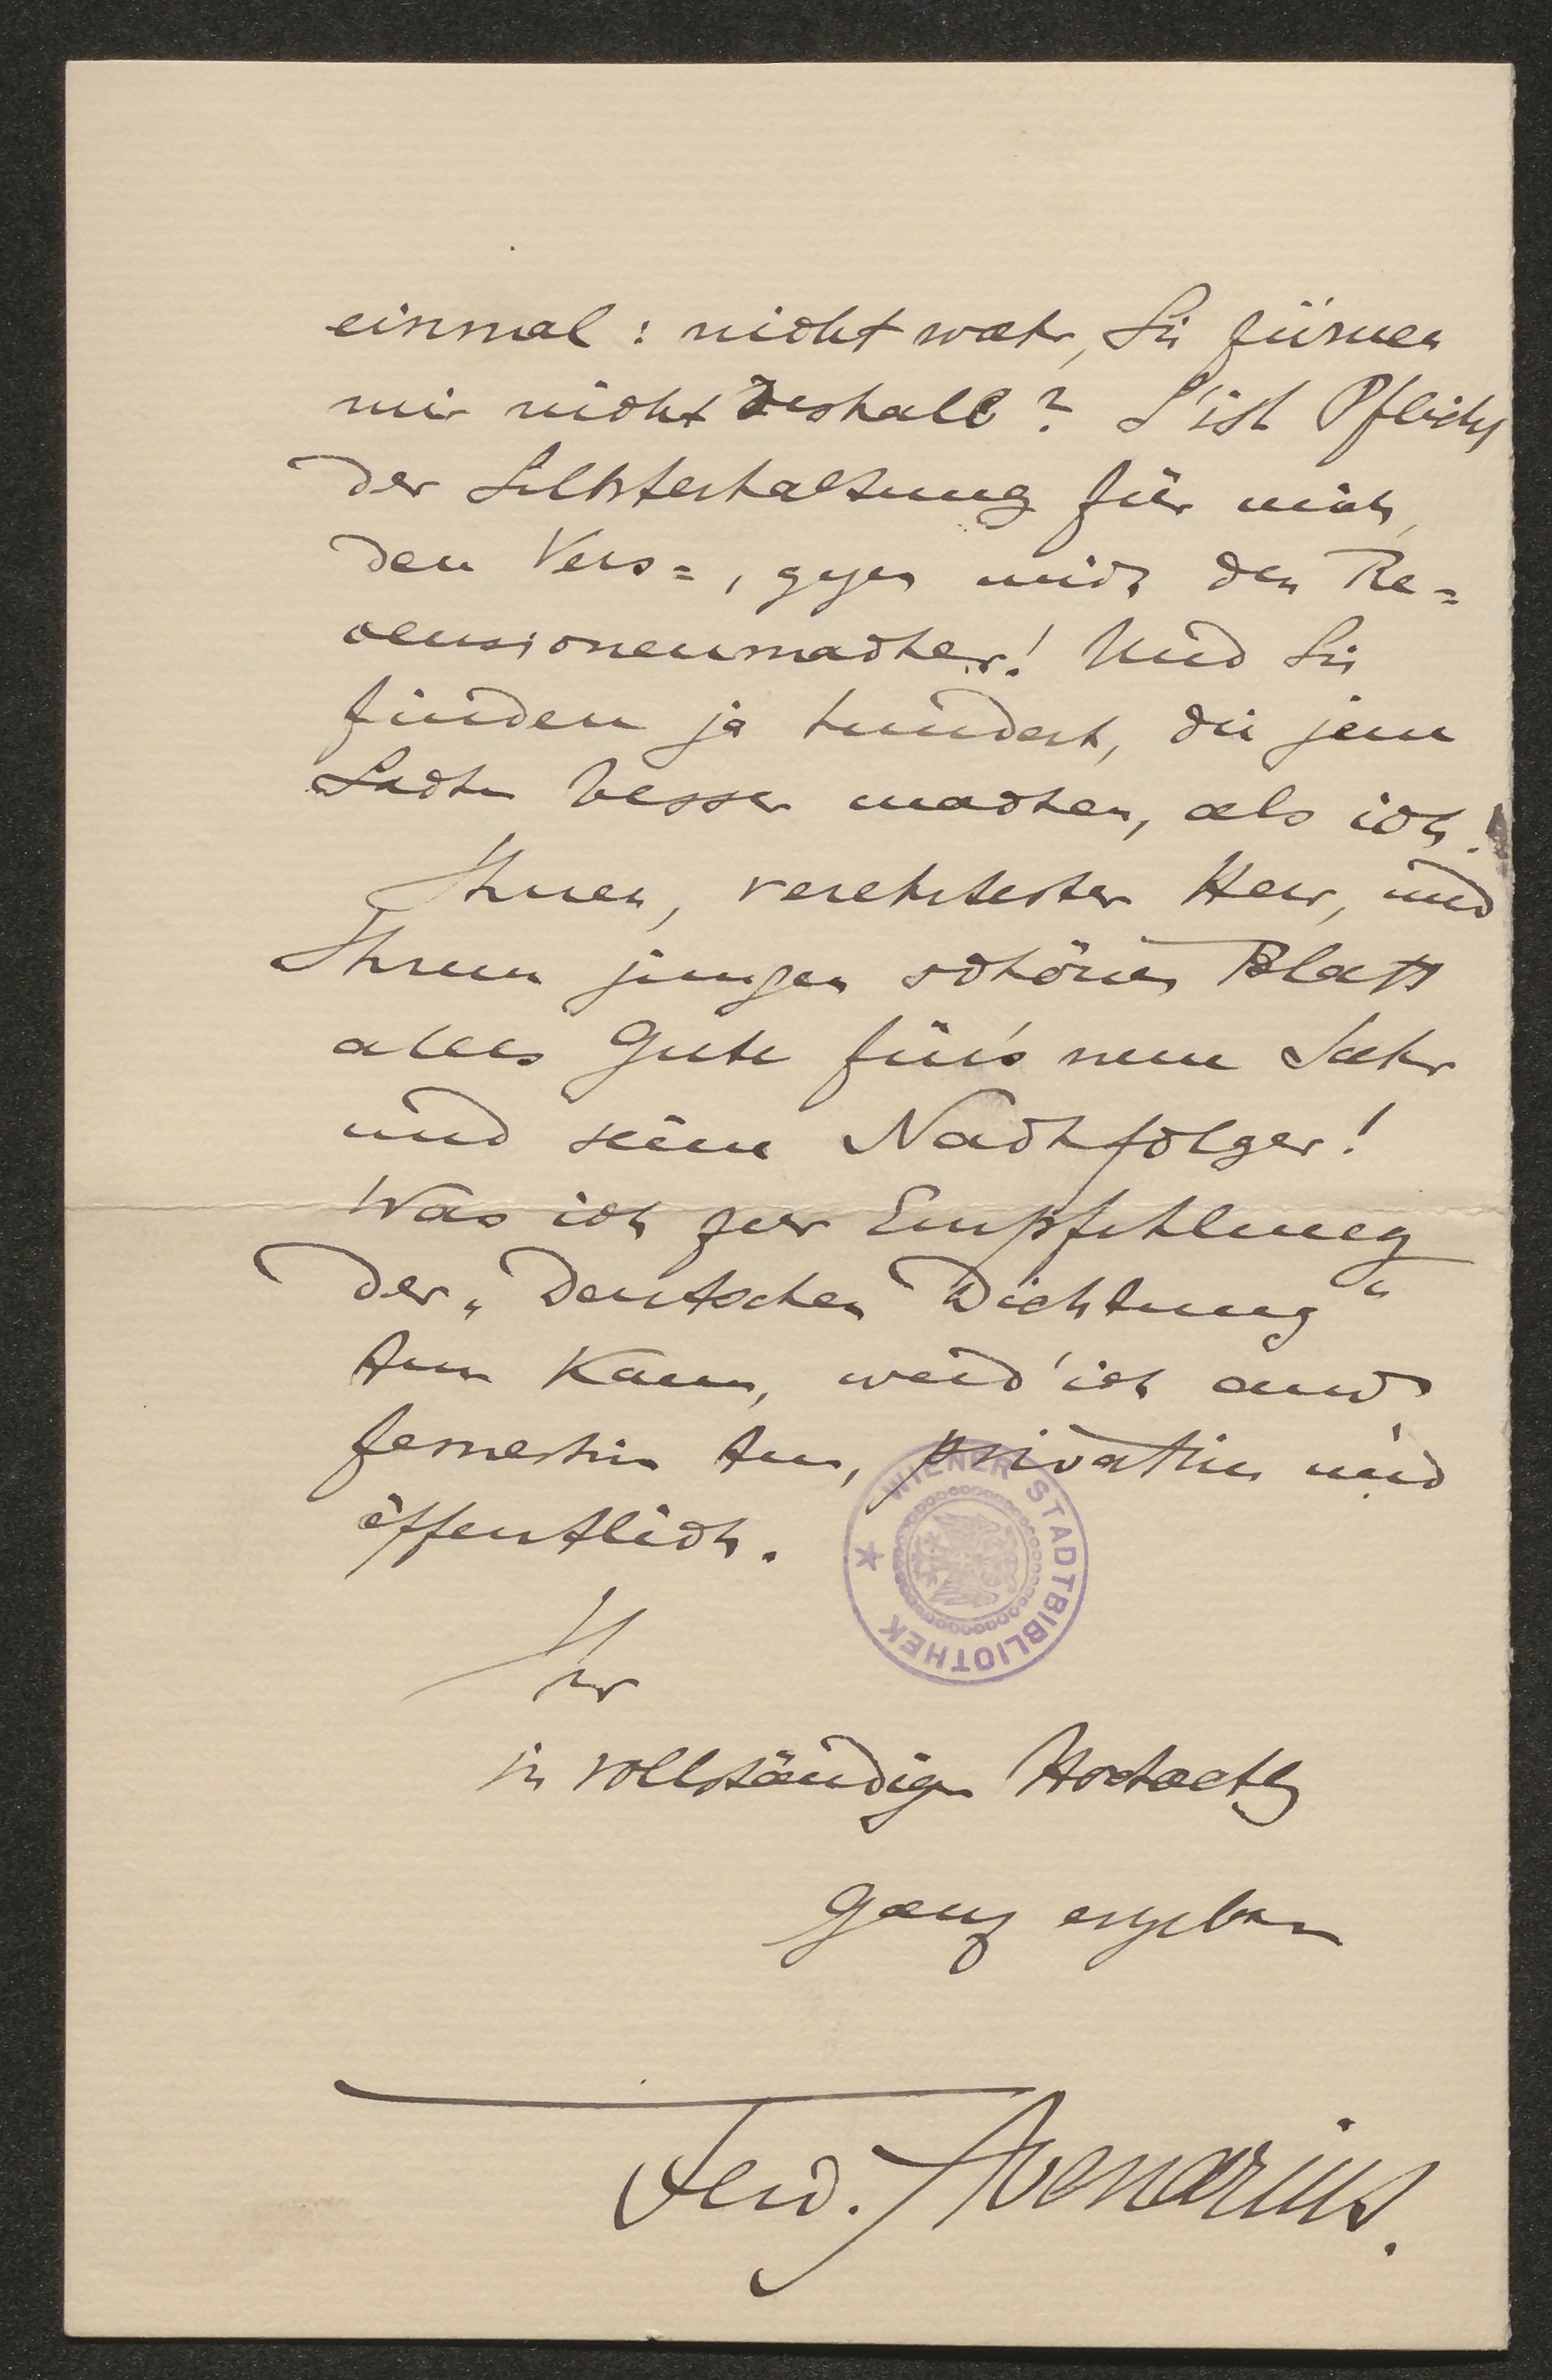 einmal: nicht wahr, Sie zürnen
mir nicht deshalb? S'ist Pflicht
der Selbsterhaltung für mich,
den Vers=, gegen mich den Re=
censionenmacher! Und Sie
finden ja hundert, die jene
Sache besser machen, als ich!
Ihnen, verehrtester Herr, und
Ihrem jungen schönen Blatt
alles Gute für's neue Jahr
und seine Nachfolger!
Was ich zur Empfehlung
der „Deutschen Dichtung“
tun kann, werd' ich auch
fernerhin tun, privatim und
öffentlich.
WIENER STADTBIBLIOTHEK
Ihr
in vollständiger Hochachtg
ganz ergebener
Ferd. Avenarius.